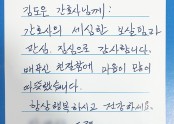 김도우 간호사님께:
간호사의 세심한 보살핌과
관심 진심으로 감사합니다.
베푸신 친절함에 마음이 많이
따뜻했습니다.
항상 행복하시고 건강하세요.